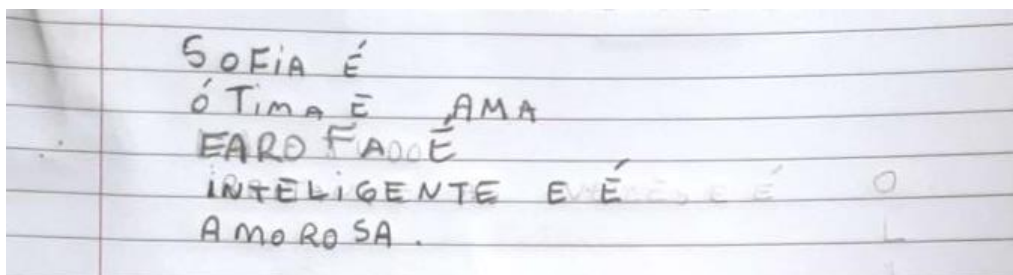 SOFiA É
ÓTimA E AMA
FAROFA É
iNTELiGENTE E É
AmoRoSA.